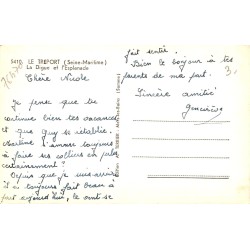 5410. LE TRÉPORT (Seine-Maritime)
La Digue et l'Esplanade
Chère Nicole
Je pense que tu
continue bien tes vacances
et que Guy se rétablie.
Martine s'amuse toujours à
faire ses colliers en plus
certainement!
Depuis que je
il a toujours fait beau à
part aujourd'hui, le
fait sentir.
Bien le bonjour à tes
parents de ma part.
Sincère amitié
Geneviève
3.-